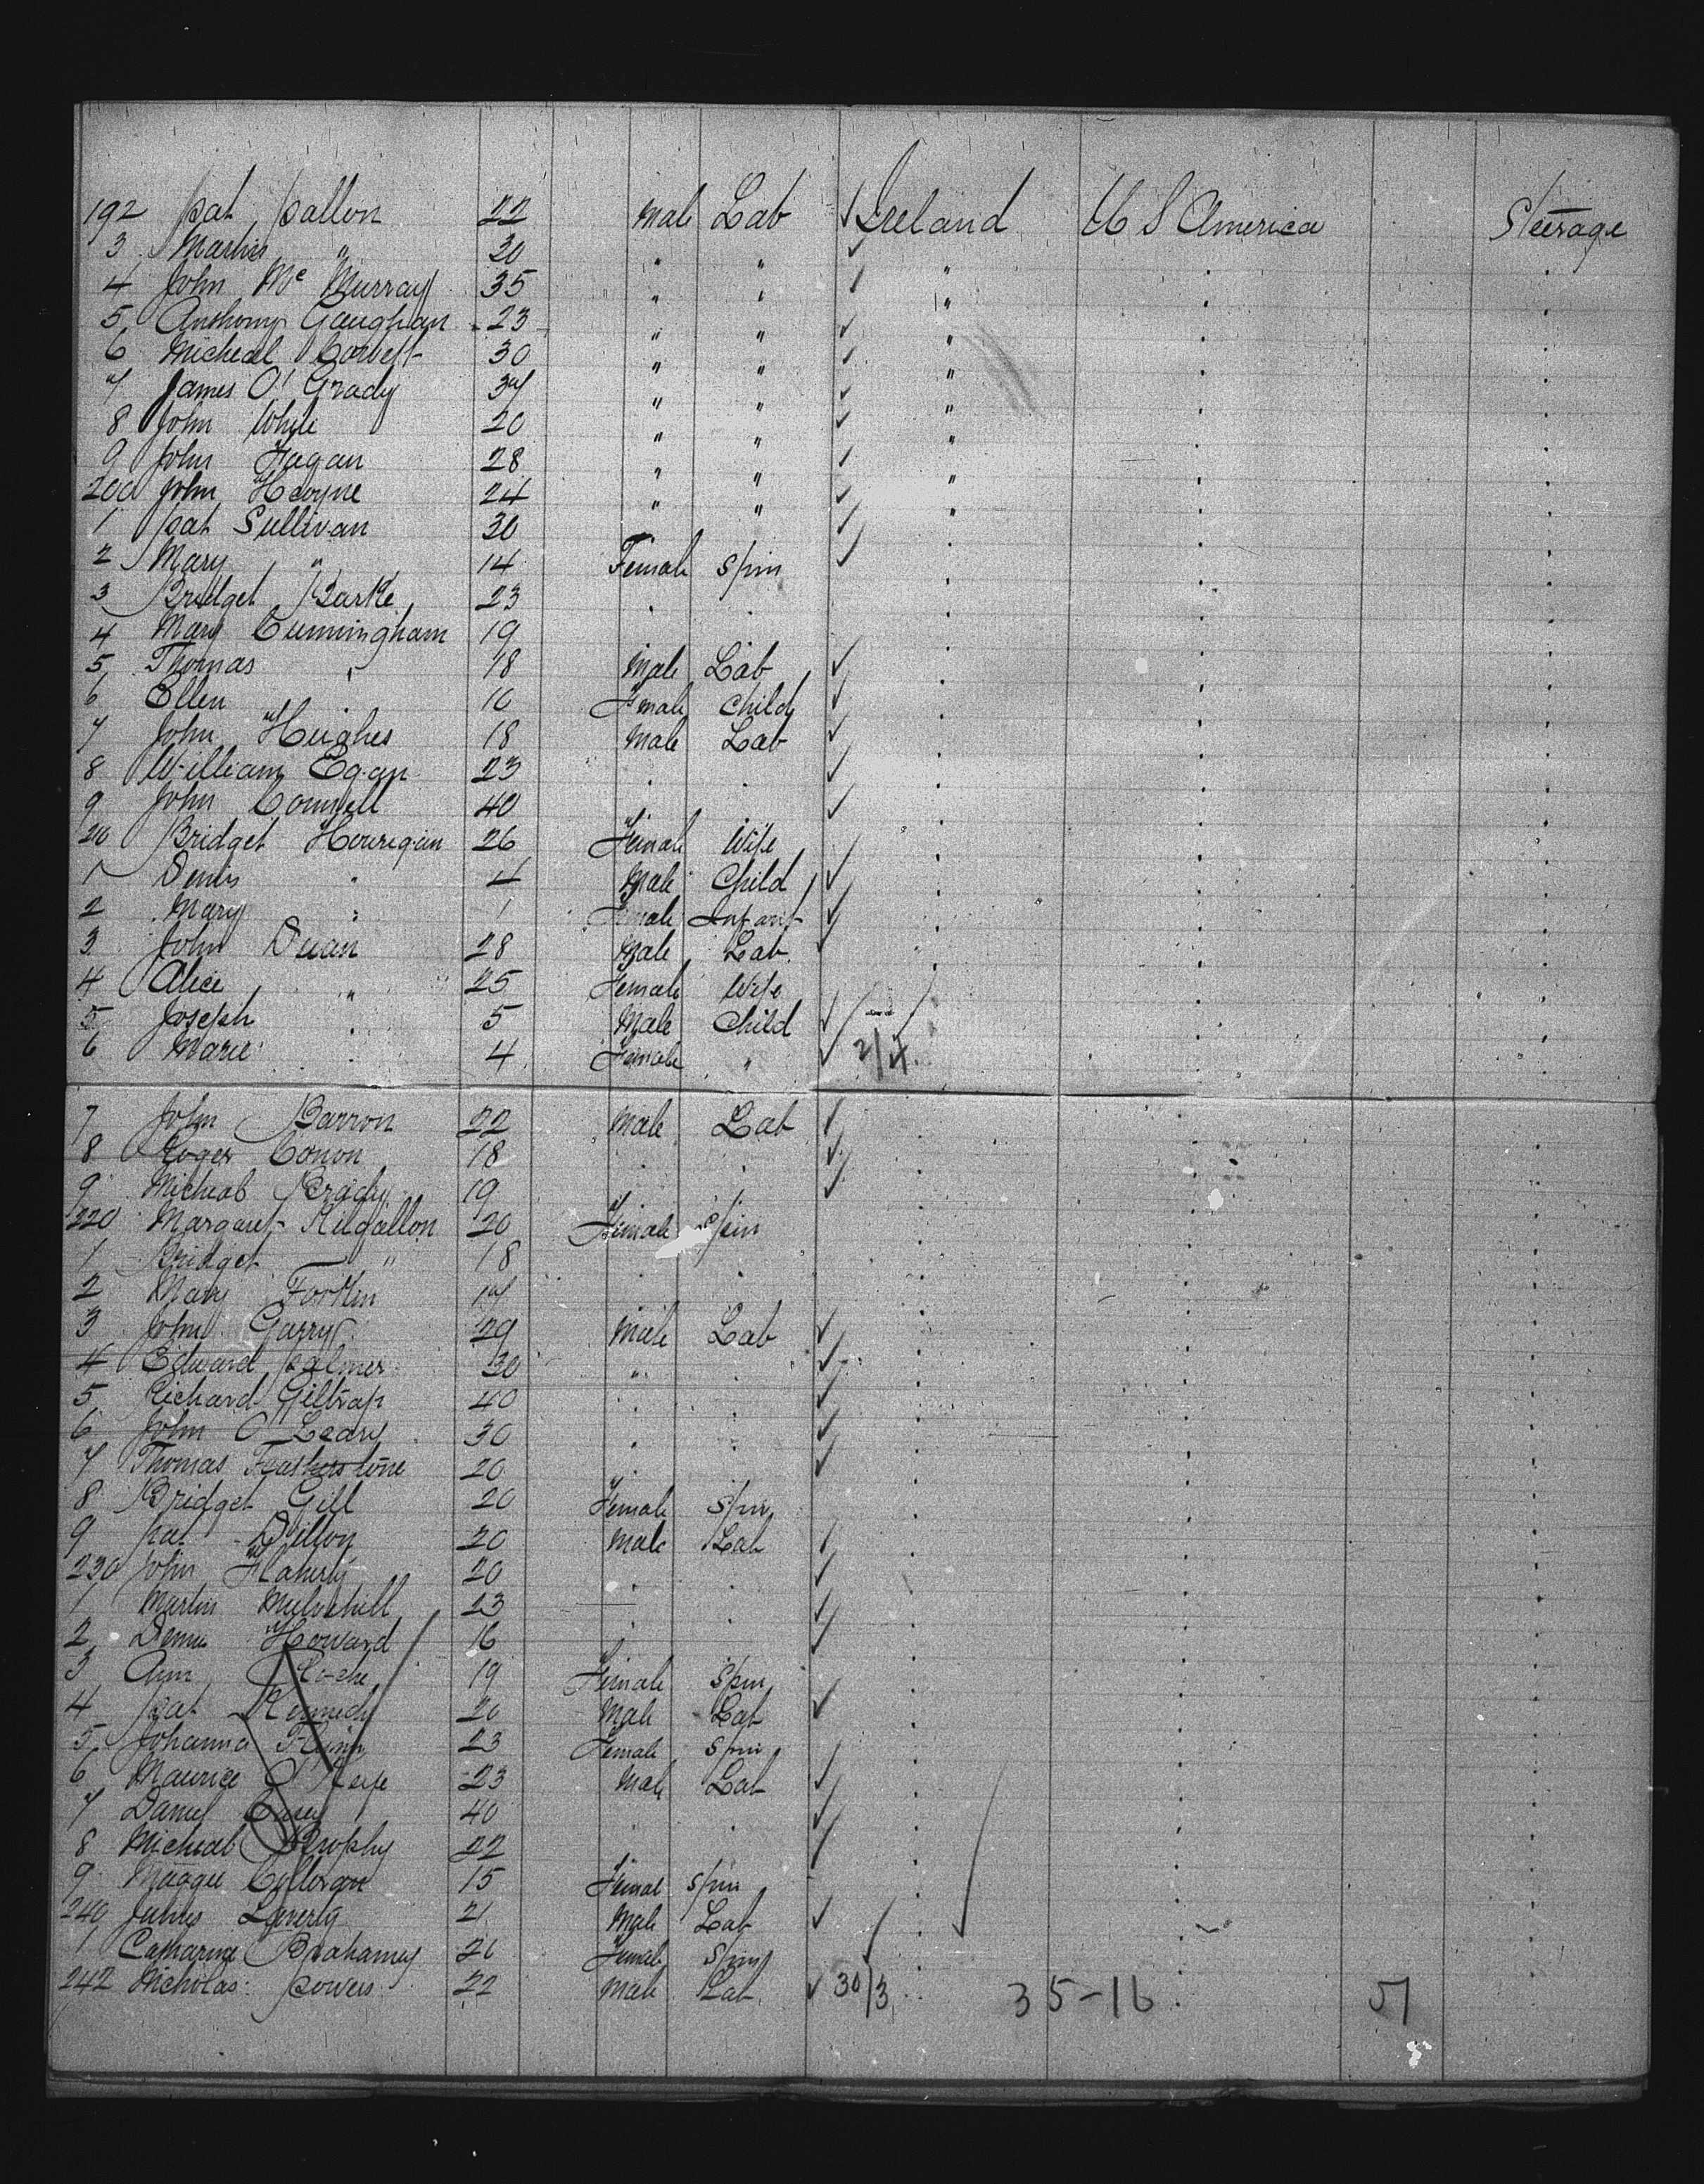 192 Pat Pallon 22 Male Lab Ireland U S America Steerage
3 " 20 " "
4 John Mc Murray 35 " " "
5 Anthony Gaughan 23 " " "
6 Micheal Corbett 30 " " "
7 James O'Grady 37 " " "
8 John White 20 " " "
9 John Fagan 28 " " "
200 John 24 " " "
1 Pat Sullivan 30
2 Mary " 14 Female Spin
3 Bridget Burke 23
4 Mary Cunningham 19
5 Thomas " 18 Male Lab
6 Ellen 10 Female Child
7 John Hughes 18 Male Lab
8 William Egan 23
9 John Connell 40
210 Bridget Hourigan 26 Female Wife
1 Denis " 4 Male Child
2 Mary " 1 Female Infant
3 John Duan 28 Male Lab
4 Alice " 25 Female Wife
5 Joseph " 5 Male Child
6 Marie " 4 Female " 2/4
7 John Barron 22 Male Lab
8 Roger Conon 18
9 Micheal Brady 19
220 Margaret Kilgallon 20 Female Spin
1 Bridget " 18
2 Mary 17
3 John Garry 29 Male Lab
4 Edward Palmer 30 "
5 Richard Giltrap 40
6 John O'Leary 30
7 Thomas Featherstone 20
8 Bridget Gill 20 Female Spin
9 Pat Dillon 20 Male Lab
230 John Flaherty 20
1 Martin Mulvehill 23
2 Denis Howard 16
3 Ann Roche 19 Female Spin
4 Pat Kennedy 20 Male Lab
5 Johanna 23 Female Spin
6 Maurice O'Keefe 23 Male Lab
7 Daniel 40
8 Micheal Brophy 22
9 Maggie 15 Female Spin
240 James Laverty 21 Male Lab
1 Catharine 21 Female Spin
242 Nicholas Powers 22 Male Lab 30/3 35-16 51